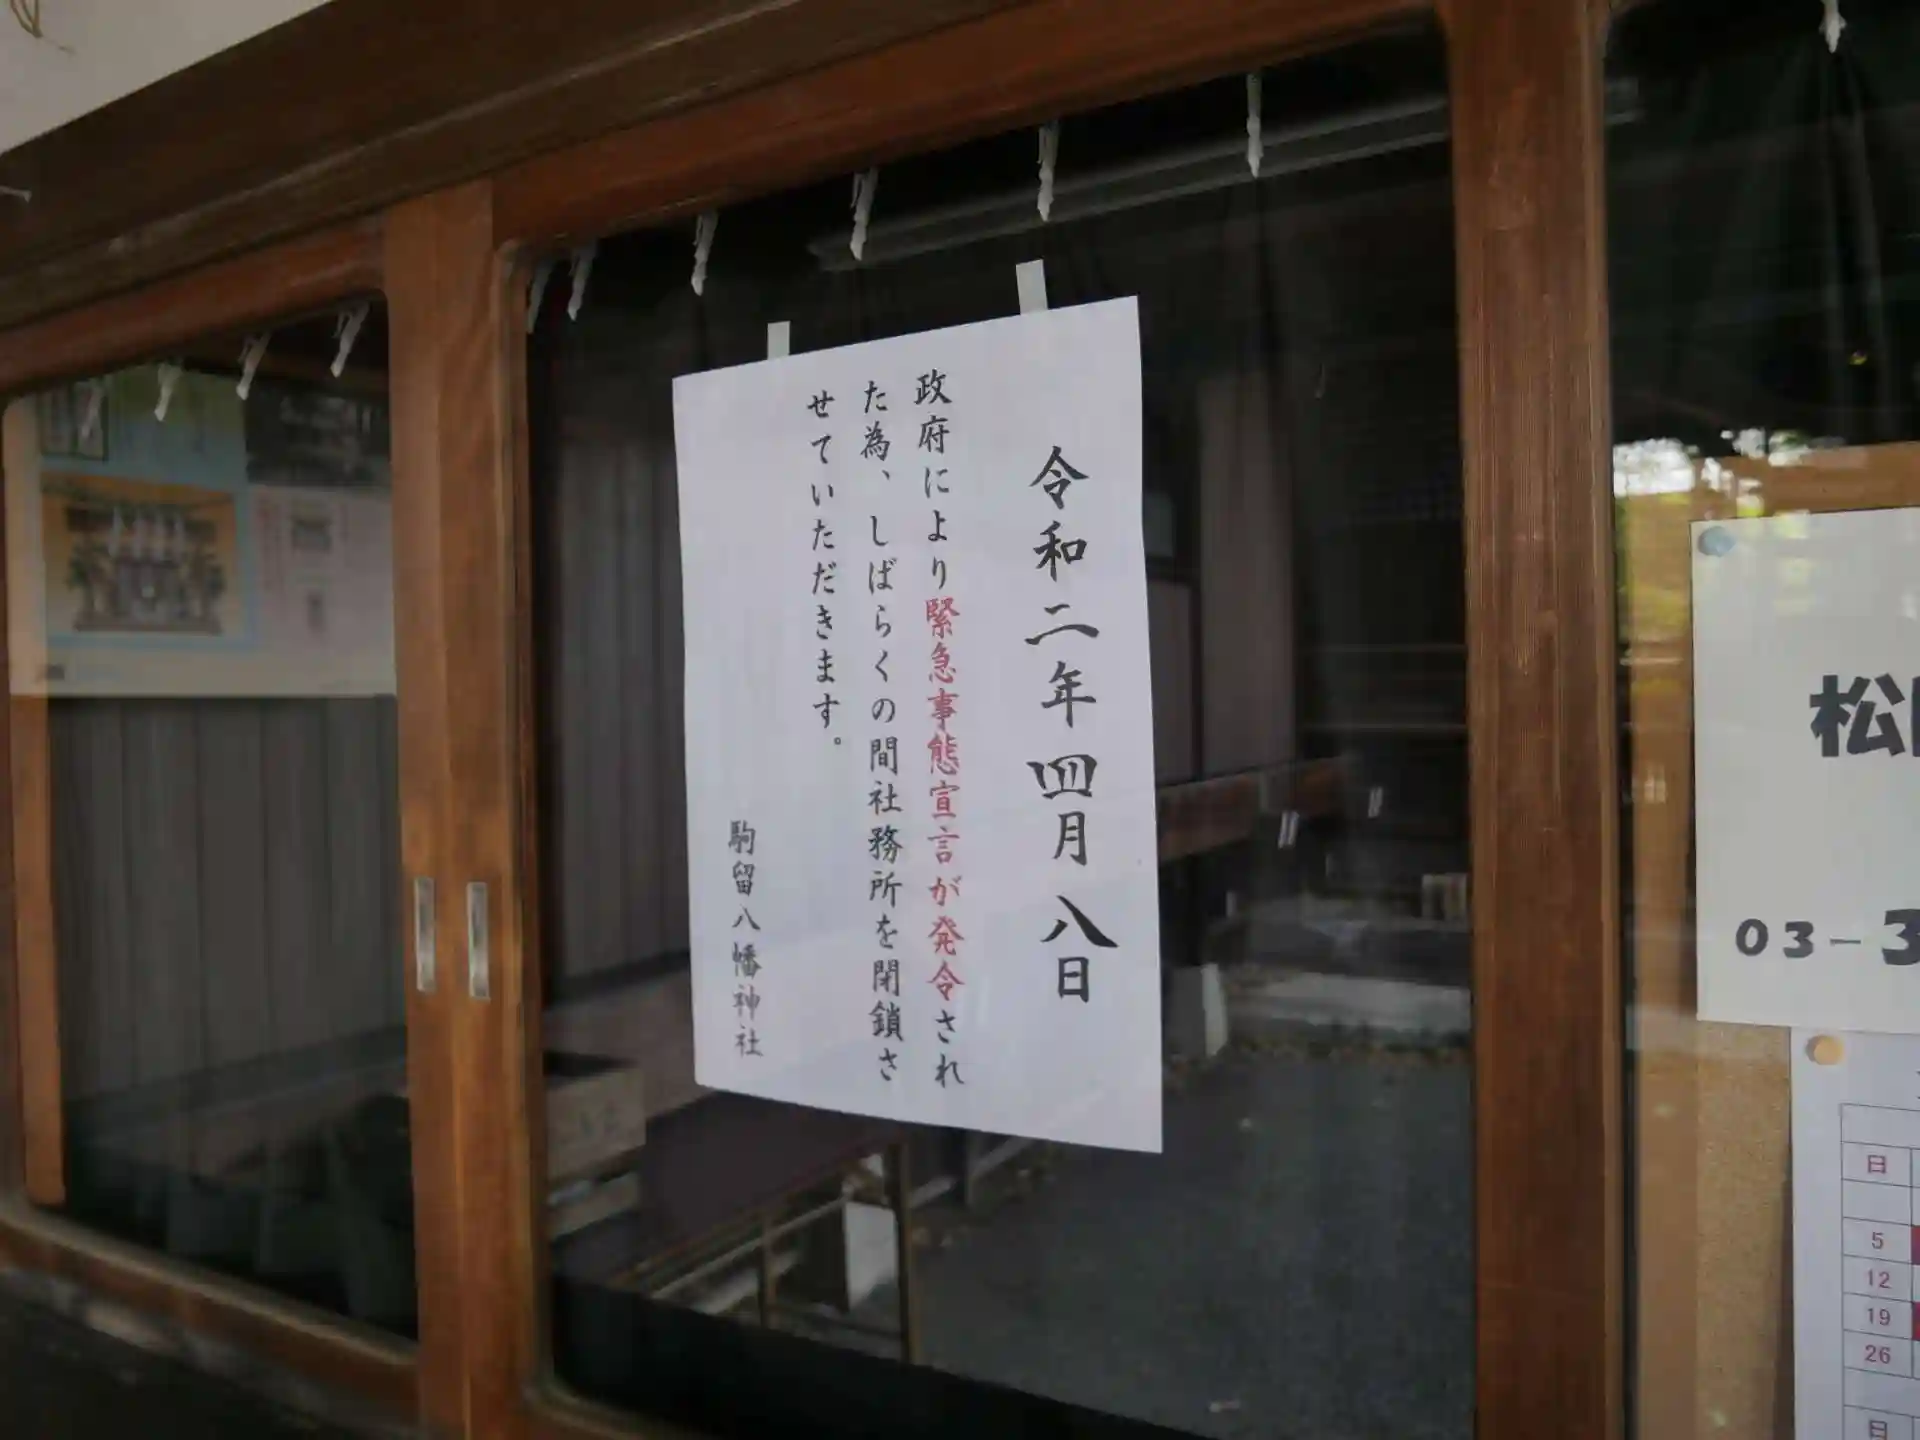 令和二年四月八日
政府により緊急事態宣言が発令され
た為、しばらくの間社務所を閉鎖さ
せていただきます。
駒留八幡神社
松
03-3
日
5
12
19
26
日